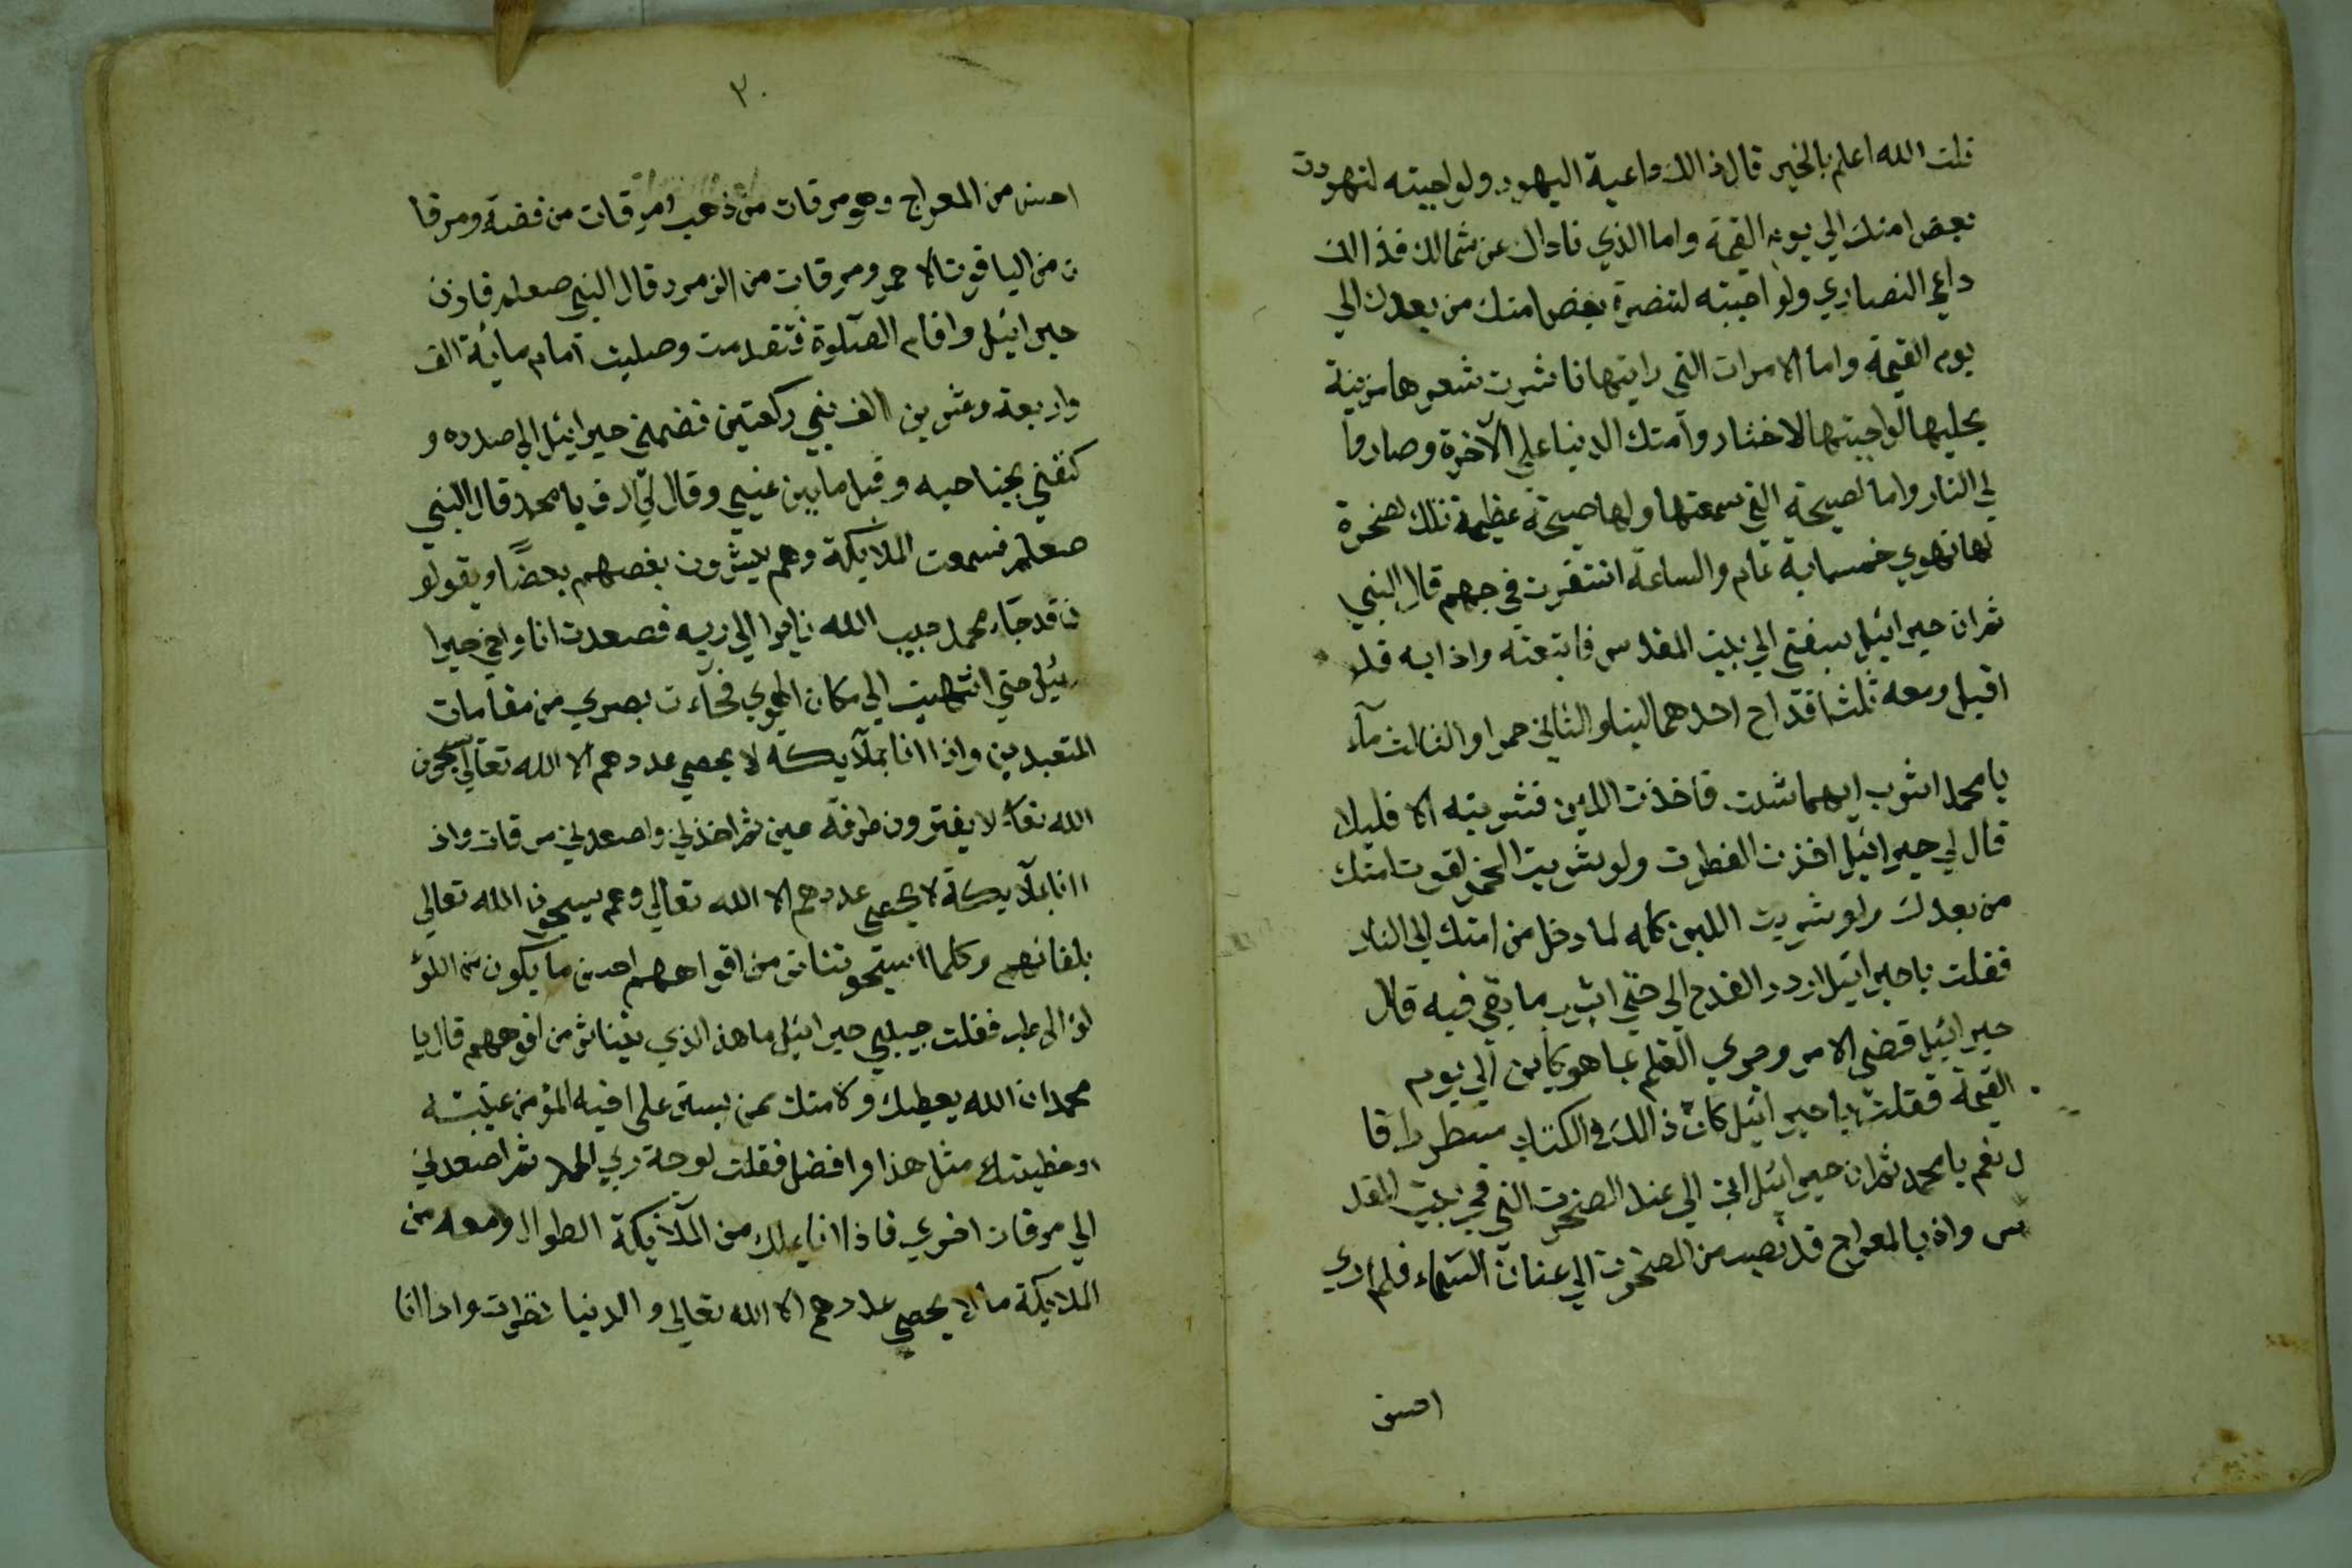 قلت الله اعلم بالخير قال ذالك داعية اليهود ولو اجبته لتهودت
بعض امتك الي يوم القيمة واما الذي ناداك عن شمالك فذالك
داعي النصاري ولو اجبته لتنصرة بعض امتك من بعدك الي
يوم القيمة واما الامرات التي رايتها ناشرت شعرها مزينة
بحليها لو اجبتها لاختار وامتك الدنيا علي الآخرة وصاروا
لي النار واما لصيحة التي سمعتها ولها صيحة عظيمة تلك لصخرة
لها تهوي خمسماية عام والساعة استقرت في جهم قال النبي
ثم ان جبرائيل سبقني الي بيت المقدس فاتبعته واذا به قد
اقبل ومعه ثلث اقداح احدهما لبنا والثاني خمرا والثالث مآء
يا محمد اشرب ايهما شئت فاخذت اللبن فشربته الا قليلا
قال لي جبرائيل اخذت الفطرت ولو شربت الخمر لغوت امتك
من بعدك ولو شربت اللبن كله لما دخل من امتك الي النار
فقلت يا جبرائيل اردد القدح الي حتي اشرب ما بقي فيه قال
جبرائيل قضي الامر وجري القلم بما هو كاين الي يوم
القيمة فقلت يا جبرائيل كان ذالك في الكتاب مسطورا قا
ل نعم يا محمد ثم ان جبرائيل اتي الي عند الصخرت التي في بيت المقد
س واذ بالمعراج قد نصب من الصخرت الي عنان السماء فلم اري
احسن
٢٠
احسن من المعراج وهو مرقات من ذهب ومرقات من فضة ومرقا
ت من الياقوت الاحمر ومرقات من الزمرد قال النبي صعلم فاذن
جبرائيل واقام الصلوة فتقدمت وصليت امام مائة الف
واربعة وعشرين الف نبي ركعتين فضمني جبرائيل الي صدره و
كنفني بجناحيه وقبل ما بين عيني وقال لي ارق يا محمد قال النبي
صعلم فسمعت الملايكة وهم يبشرون بعضهم بعضًا ويقولو
ن قد جاء محمد حبيب الله الي ربه فصعدت انا واخي جبرا
ئيل حتي انتهيت الي مكان الهوي بصري من مقامات
المتعبدين واذا انا بملآيكة لا يحصي عددهم الا الله تعالي يسبحون
الله تعا لا يفترون طرفة عين ثم اخذني واصعدني مرقات واذ
ا انا بملآيكة لا يحصي عددهم الا الله تعالي وهم يسبحون الله تعالي
بلغاتهم وكلما من افواههم احسن ما يكون من اللؤ
لؤ الرطب فقلت حبيبي جبرائيل ما هذ الذي يتناثر من افوههم قال يا
محمد ان الله يعطيك ولامتك لمن يستر علي اخيه المؤمن عيبته
او خطيئته مثل هذا وافضل فقلت لوجه ربي الحمد ثم اصعدني
الي مرقات اخري فاذا انا بملك من الملآئكة الطوال ومعه من
الملايكة ما لا يحصي عددهم الا الله تعالي والدنيا نظرت واذا انا